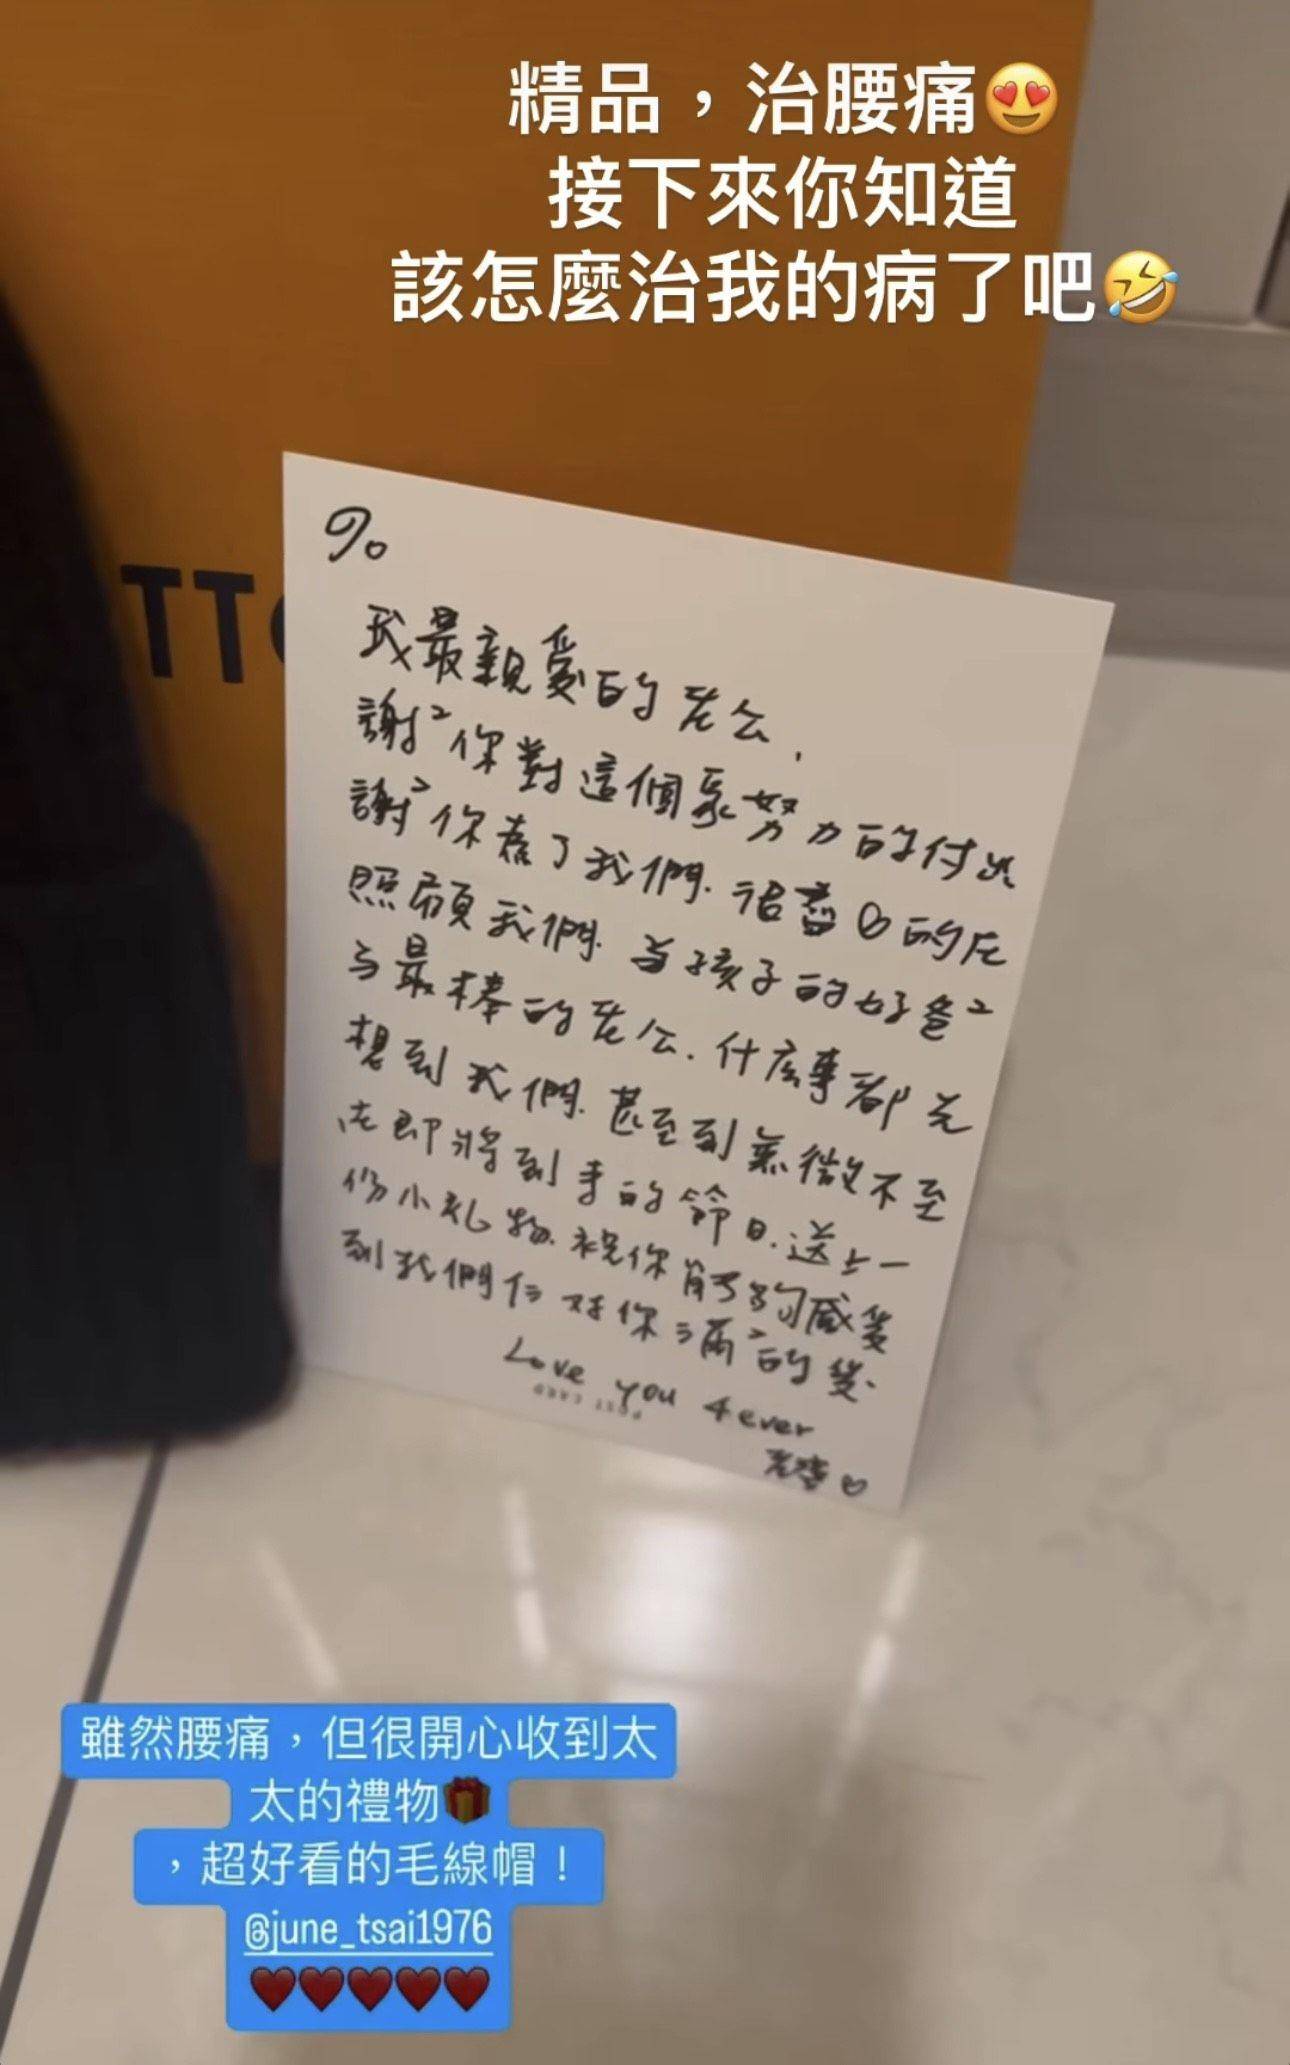 精品，治腰痛😍
接下來你知道
該怎麼治我的病了吧🤣
TT
To
我最親愛的老公，
謝²你對這個家努力的付出
謝²你為了我們.
的在
照顧我們.當孩子的好爸²
与最棒的老公.什広事都先
想到我們.甚至到無微不至
在即將到来的節日.送上一
份小礼物.祝你能夠感受
到我們仨对你満²的愛.
Love you 4ever
POST CARD
老婆♡
雖然腰痛，但很開心收到太
太的禮物🎁
，超好看的毛線帽！
@june_tsai1976
❤️❤️❤️❤️❤️